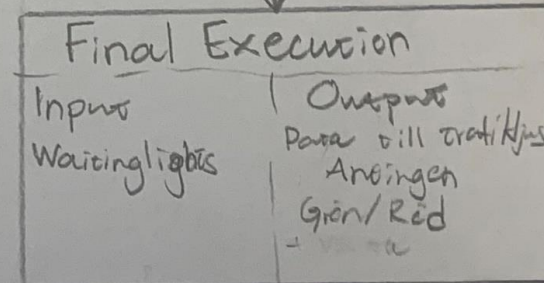 Final Execution
Input
Waitinglights
Output
Data till trafikljus
Antingen
Grön/Röd